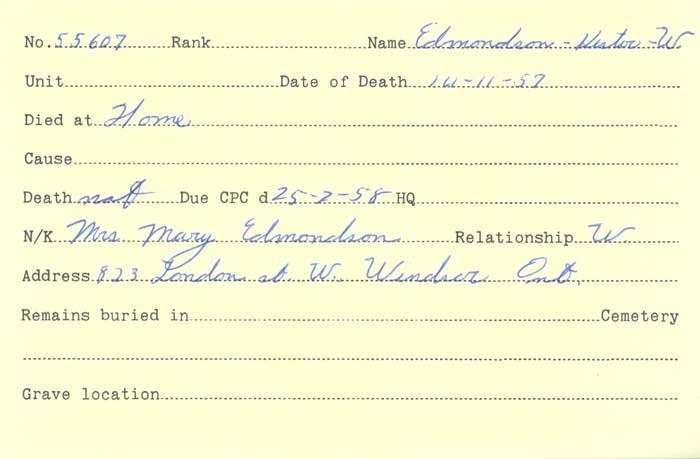 No. 55607 Rank Name Edmondson - Victor - W.
Unit Date of Death 14-11-57
Died at Home
Cause
Death not Due CPC d 25-2-58 HQ
N/K Mrs. Mary Edmondson Relationship W
Address 823 London st. W. Windsor Ont.
Remains buried in Cemetery
Grave location